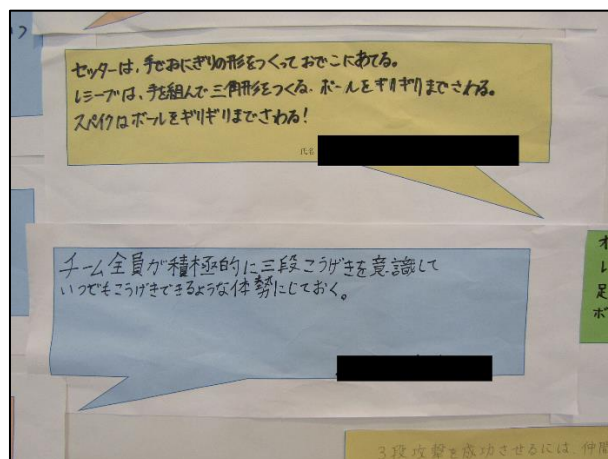 セッターは、手でおにぎりの形をつくっておでこにあてる。
レシーブは、手を組んで三角形をつくる。ボールをギリギリまでさわる。
スパイクはボールをギリギリまでさわる!
氏名
チーム全員が積極的に三段こうげきを意識して
いつでもこうげきできるような体勢にしておく。
オ
レ
足
ボ
3段攻撃を成功させるには、仲間